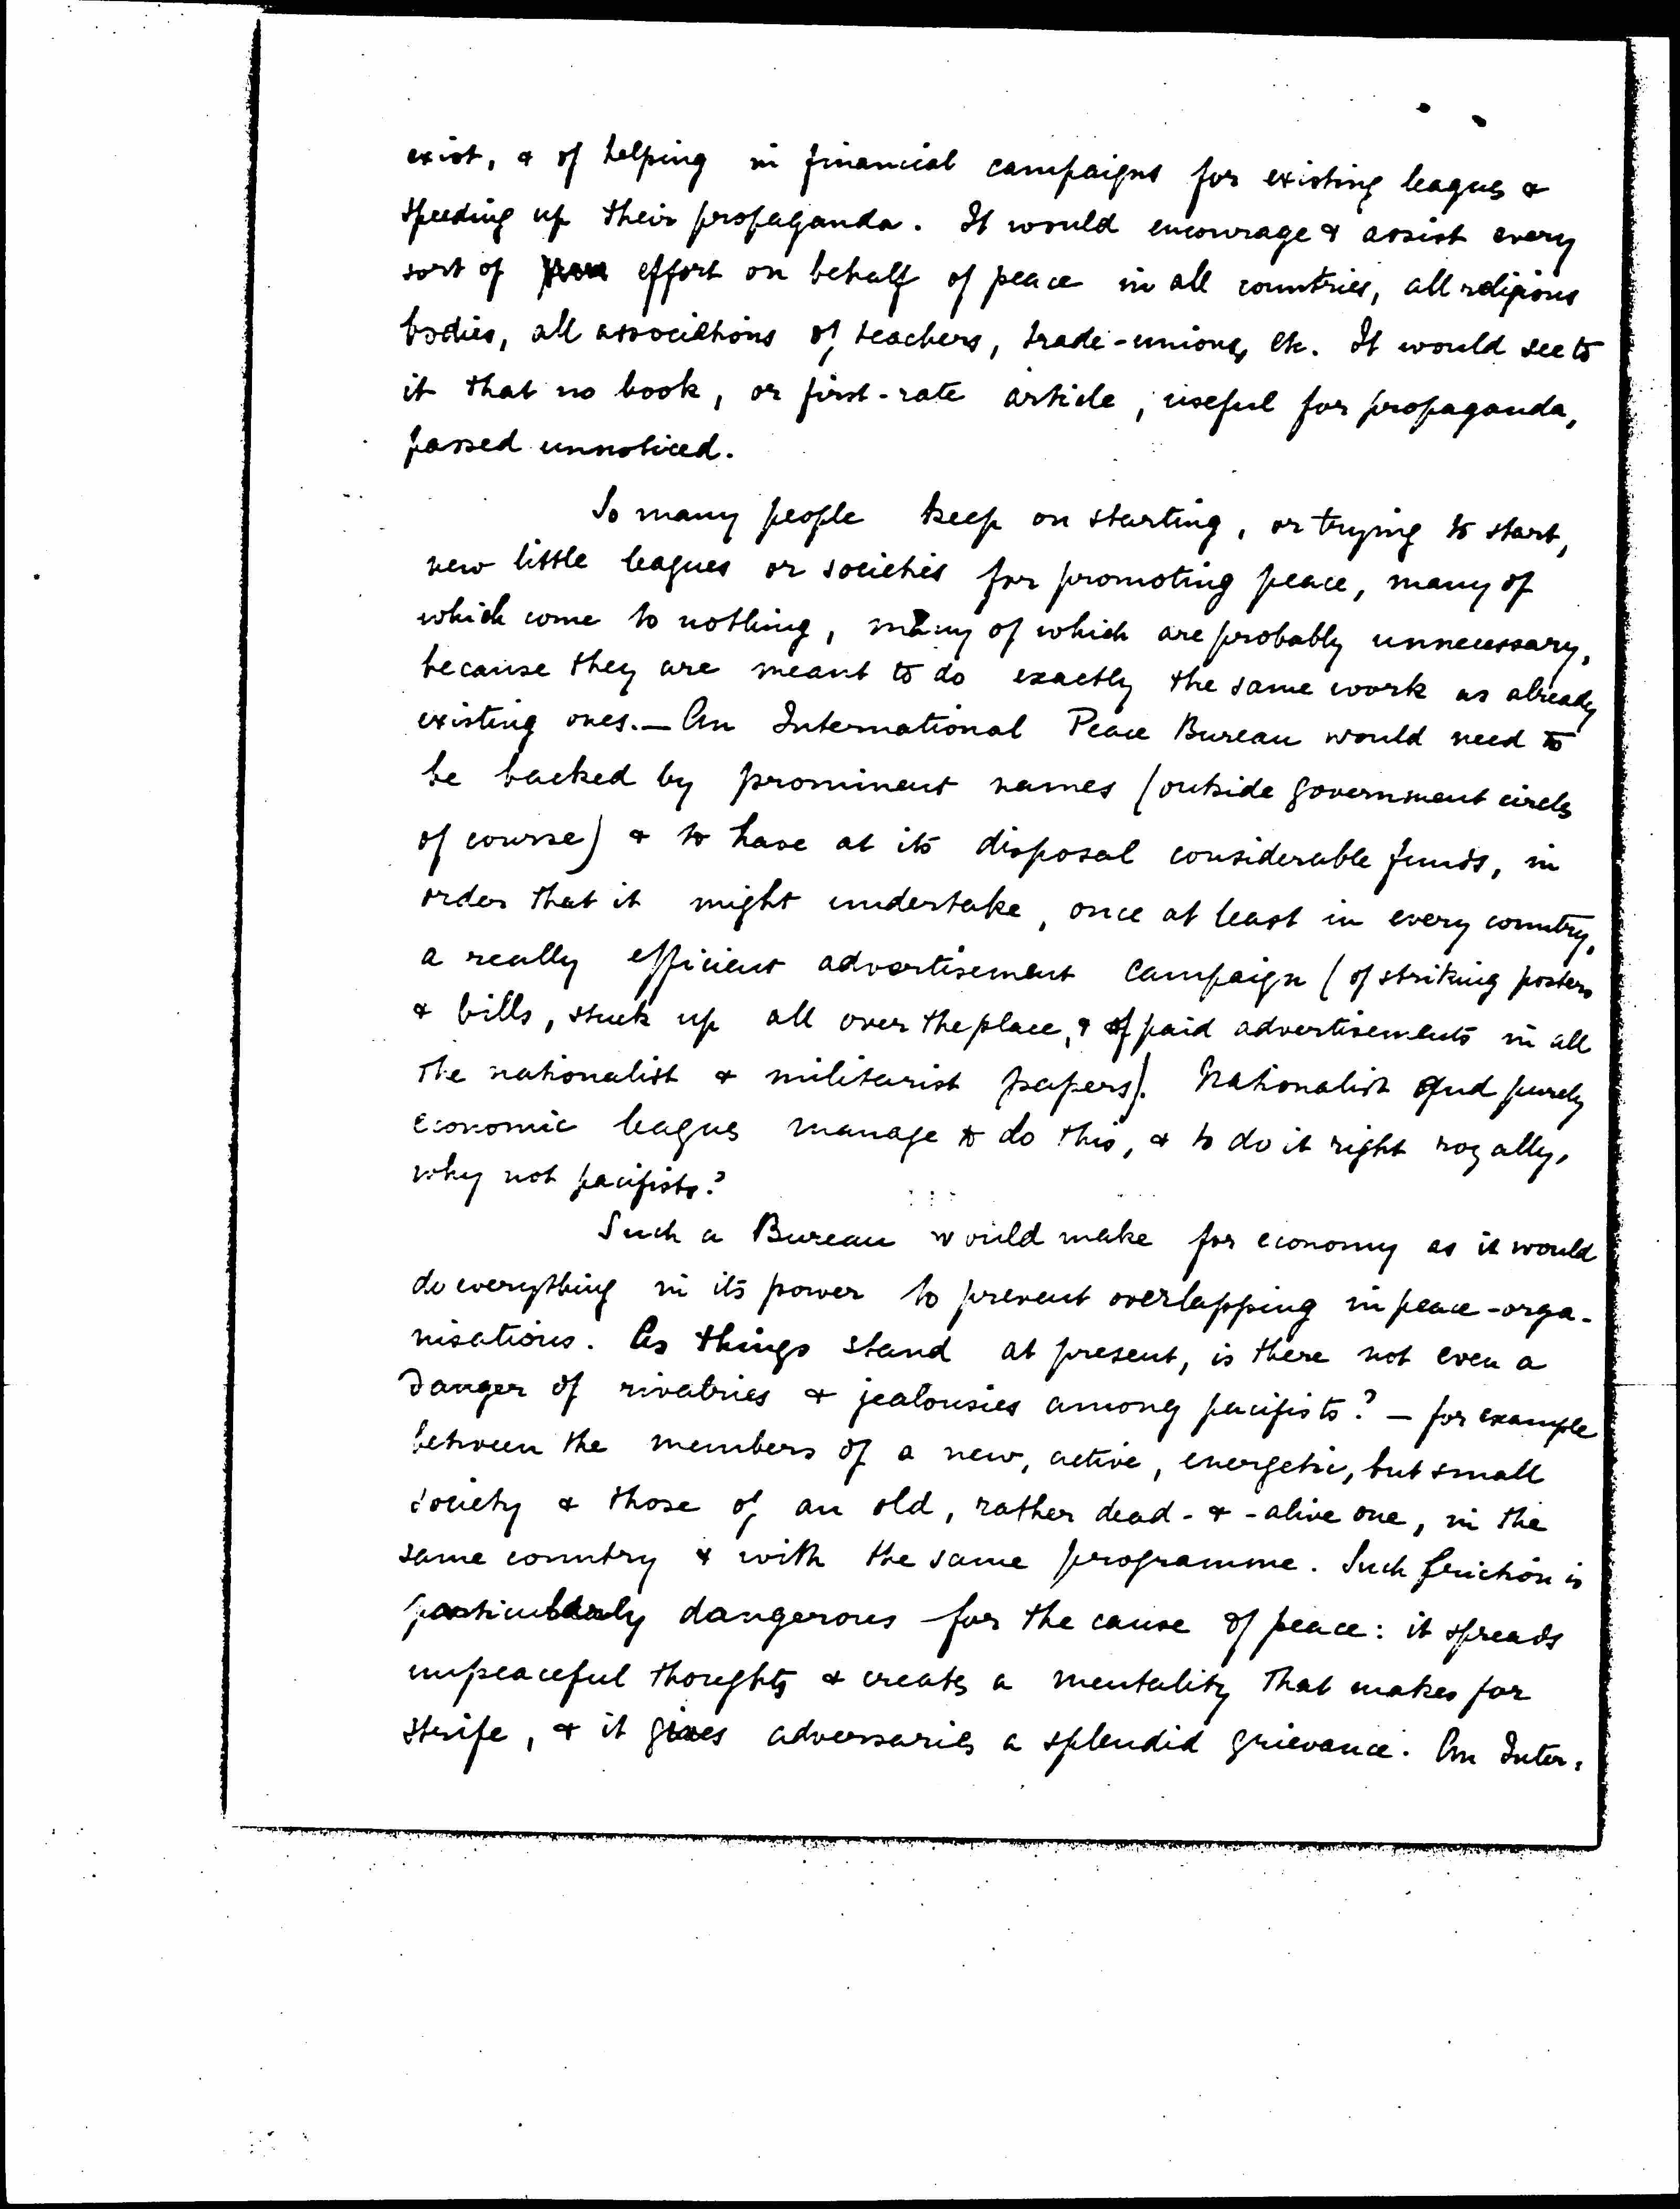 exist, & of helping in financial campaigns for existing leagues &
speeding up their propaganda. It would encourage & assist every
sort of effort on behalf of peace in all countries, all religious
bodies, all associations of teachers, trade-unions, etc. It would see to
it that no book, or first-rate article, useful for propaganda,
passed unnoticed.
So many people keep on starting, or trying to start,
new little leagues or societies for promoting peace, many of
which come to nothing, many of which are probably unnecessary,
because they are meant to do exactly the same work as already
existing ones. — An International Peace Bureau would need to
be backed by prominent names (outside government circles
of course) & to have at its disposal considerable funds, in
order that it might undertake, once at least in every country,
a really efficient advertisement campaign (of striking posters
& bills, stuck up all over the place, & of paid advertisements in all
the nationalist & militarist papers). Nationalist and purely
economic leagues manage to do this, & to do it right royally,
why not pacifists?
Such a Bureau would make for economy as it would
do everything in its power to prevent overlapping in peace-orga-
nisations. As things stand at present, is there not even a
danger of rivalries & jealousies among pacifists? — for example
between the members of a new, active, energetic, but small
society & those of an old, rather dead-&-alive one, in the
same country & with the same programme. Such friction is
particularly dangerous for the cause of peace: it spreads
unpeaceful thoughts & creates a mentality that makes for
strife, & it gives adversaries a splendid grievance. An Inter-